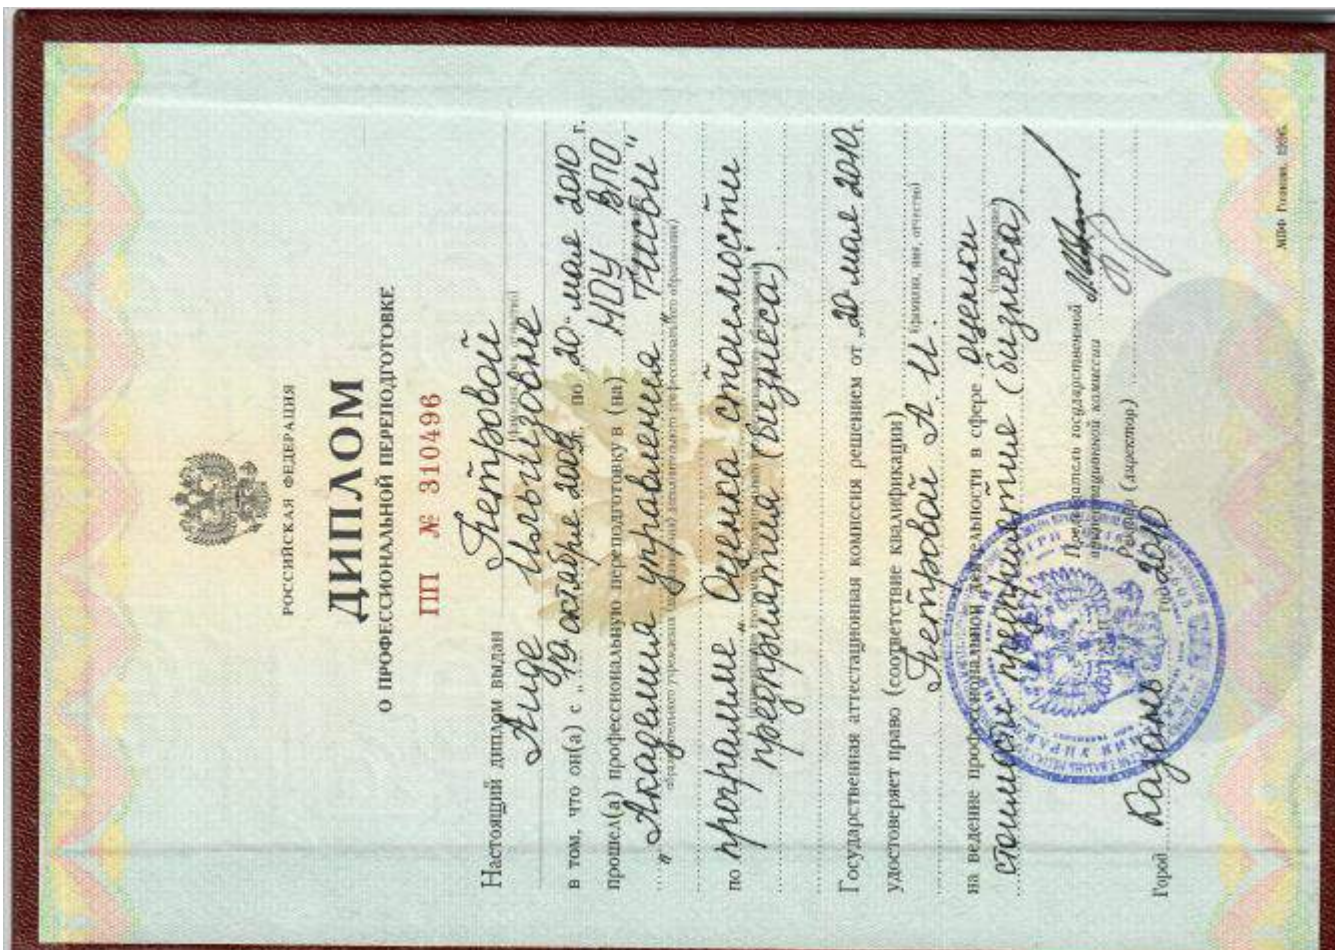 РОССИЙСКАЯ ФЕДЕРАЦИЯ
ДИПЛОМ
О ПРОФЕССИОНАЛЬНОЙ ПЕРЕПОДГОТОВКЕ
ПП № 310496
Настоящий диплом выдан Петровой
(фамилия, имя, отчество)
Аиде Ильгизовне
в том, что он(а) с „19" октября 2009г. по „20" мая 2010 г.
прошел(а) профессиональную переподготовку в (на) НОУ ВПО
„Академия управления „ТИСБИ"
образовательного учреждения дополнительного профессионального образования)
по программе „Оценка стоимости
предприятия (бизнеса)
Государственная аттестационная комиссия решением от „20 мая 2010г.
удостоверяет право (соответствие квалификации)
(фамилия, имя, отчество)
Петровой А. И.
на ведение профессиональной деятельности в сфере оценки
стоимости предприятие (бизнеса)
Председатель государственной
аттестационной комиссии
Ректор (директор)
Город Казань год 2010